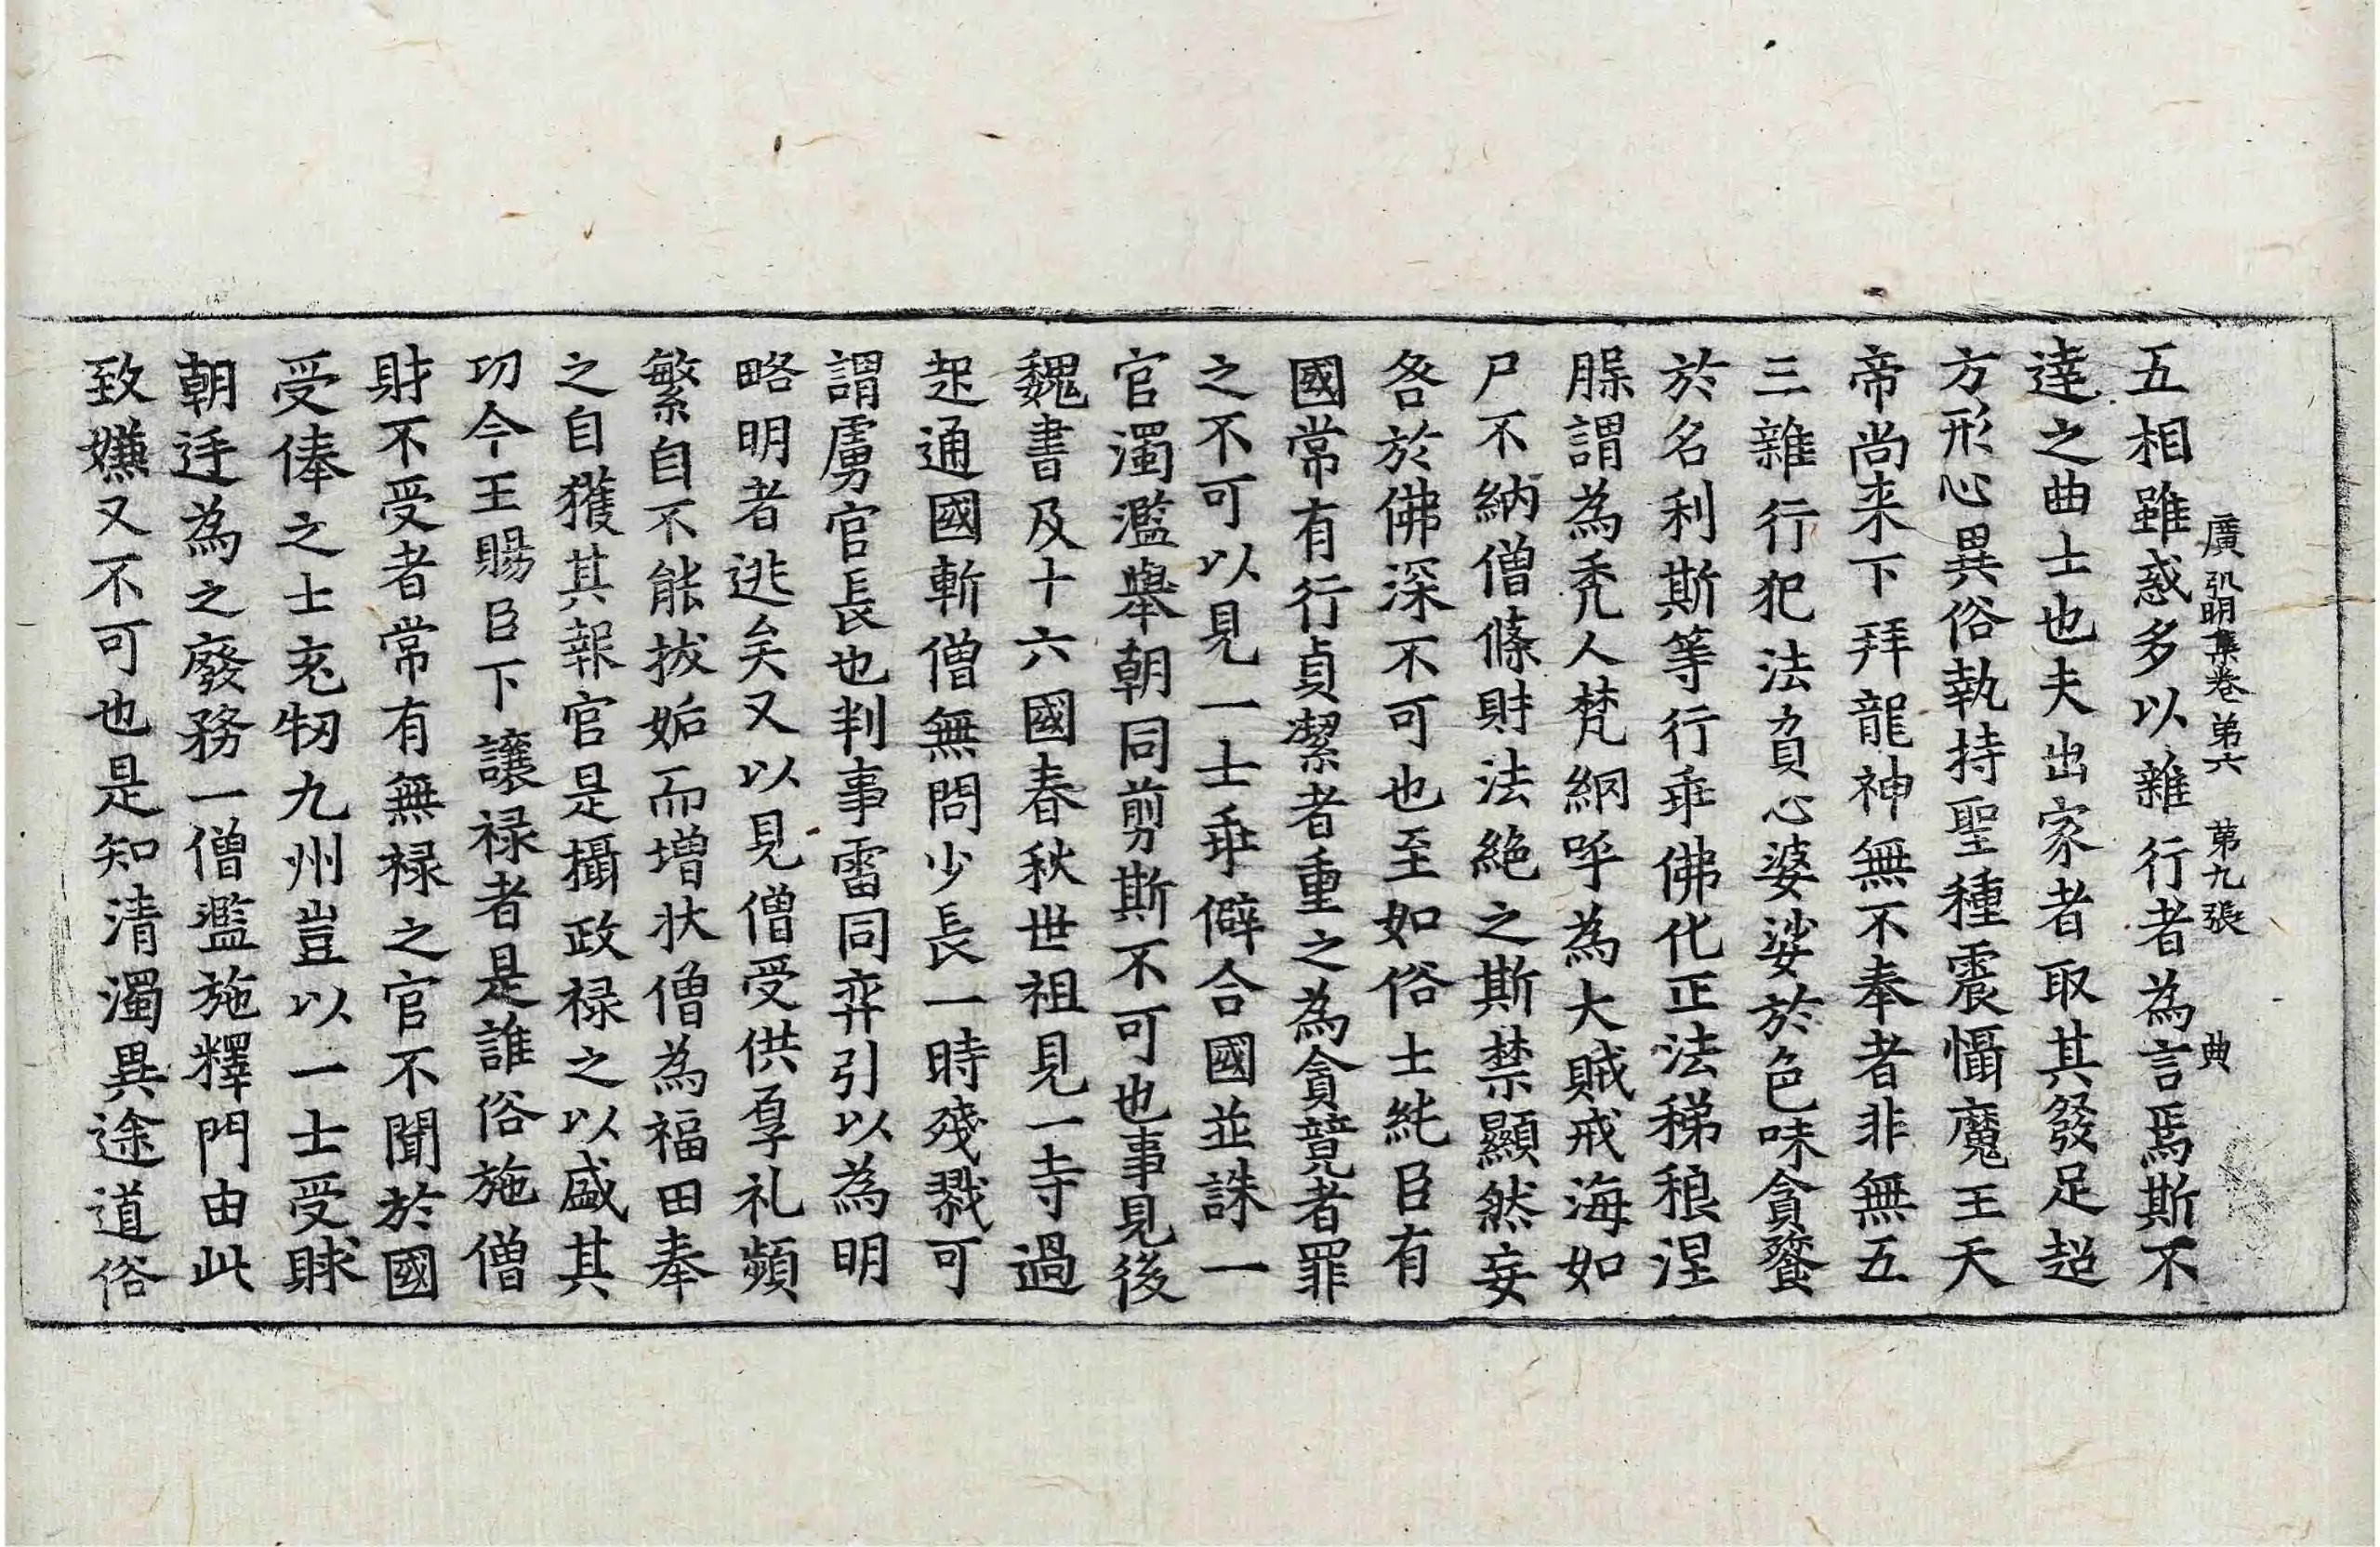 廣弘明集卷第六 第九張 典
五相雖惑多以雜行者為言焉斯不
達之曲士也夫出家者取其發足超
方形心異俗執持聖種震懾魔王天
帝尚来下拜龍神無不奉者非無五
三雜行犯法負心婆娑於色味貪餮
於名利斯等行乖佛化正法稊稂涅
槃謂為禿人梵網呼為大賊戒海如
尸不納僧條財法絶之斯禁顯然妄
咎於佛深不可也至如俗士純臣有
國常有行貞潔者重之為貪競者罪
之不可以見一士乖僻合國並誅一
官濁濫舉朝同剪斯不可也事見後
魏書及十六國春秋世祖見一寺過
起通國斬僧無問少長一時殘戮可
謂虜官長也判事雷同弈引以為明
略明者逃矣又以見僧受供厚礼頻
繁自不能拔妬而增狀僧為福田奉
之自獲其報官是攝政禄之以盛其
功今王賜臣下讓禄者是誰俗施僧
財不受者常有無禄之官不聞於國
受俸之士充牣九州豈以一士受賕
朝廷為之廢務一僧濫施釋門由此
致嫌又不可也是知清濁異途道俗